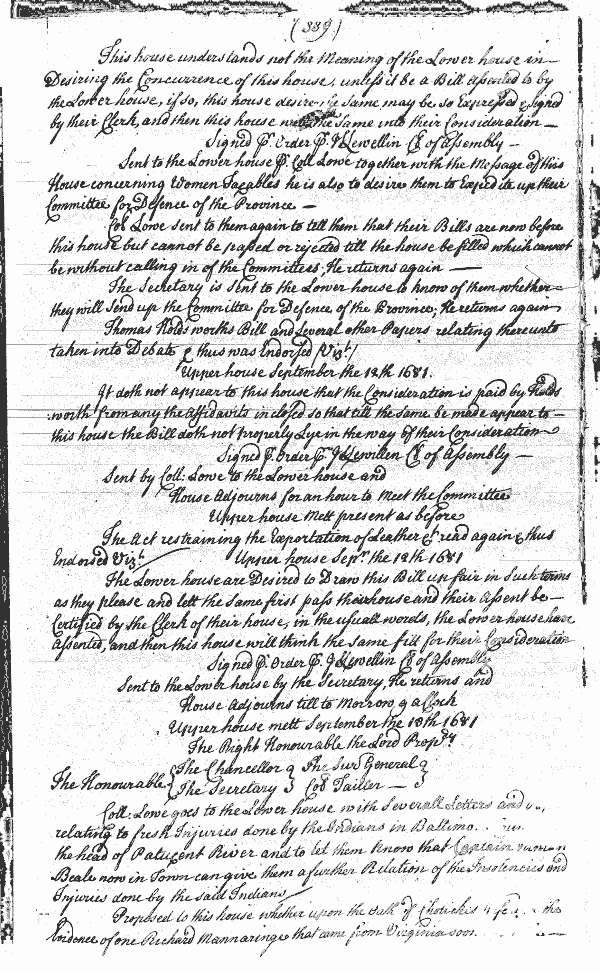 (339)
This house understands not the Meaning of the Lower house in
Desiring the Concurrence of this house, unless it be a Bill assented to by
the Lower house, if so, this house desire same may be so Expressed & signed
by their Clerk, and then this house the same into their Consideration —
Signed p. Order p. J Llewellin Cl of Assembly —
Sent to the Lower house p. Coll Lowe together with the Message of this
House concerning Women Taxables he is also to desire them to Expedite up their
Committee for Defence of the Province —
Col Lowe sent to them again to tell them that their Bills are now before
this house but cannot be passed or rejected till the house be filled which cannot
be without calling in of the Committees, He returns again —
The Secretary is sent to the Lower house to know of them whether
they will send up the Committee for Defence of the Province, He returns again
Thomas Rodsworths Bill and several other Papers relating thereunto
taken into Debate & thus was Endorsed (Vizt)
Upper house September the 12th 1681.
It doth not appear to this house that the Consideration is paid by Rods
worth from any the affidavits inclosed so that till the same be made appear to
this house the Bill doth not properly Lye in the way of their Consideration
Signed p. Order p. J Llewellin Cl of Assembly —
Sent by Coll: Lowe to the Lower house and
House Adjourns for an hour to meet the Committee
Upper house Mett present as before
The Act restraining the Exportation of Leather &c read again & thus
Endorsed Vizt. Upper house Sepr. the 12th 1681
The Lower house are Desired to Draw this Bill up fair in Such terms
as they please and lett the same first pass their house and their Assent be
Certified by the Clerk of their house, in the usuall words, the Lower house have
assented, and then this house will think the same fitt for their Consideration
Signed p. Order p. J Llewellin Cl of Assembly
Sent to the Lower house by the Secretary, He returns and
House Adjourns till to Morrow 9 a Clock
Upper house mett September the 13th 1681
The Right Honourable the Lord Propry
The Honourable { The Chancellor } The Sur General }
The Secretary } Col Tailler — }
Coll: Lowe goes to the Lower house with Severall Letters and
relating to fresh Injuries done by the Indians in Baltimo
the head of Patuxent River and to let them know that Captain
Beale now in Town can give them a further Relation of the Insolencies and
Injuries done by the said Indians
Proposed to this house whether upon the of the
Evidence of one Richard Mannaringe that came from Virginia soon